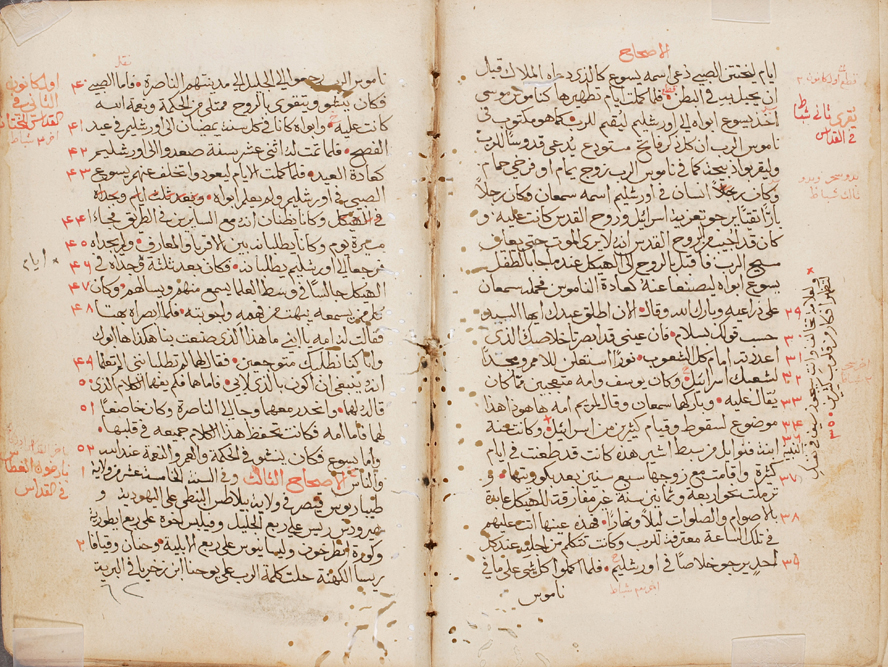 الاصحاح
ايام ليختتن الصبي دعي اسمه يسوع كالذي دعاه الملاك قبل
ان يحبل به في البطن فلما كملت ايام تطهيرها كناموس موسى
يسوع ابواه الى اورشليم ليقيم للرب كما هو مكتوب في
ناموس الرب ان كل ذكر فاتح مستودع يدعى قدوسا للرب
وليقربوا ذبيحة كما في ناموس الرب زوج يمام او فرخي حمام
وكان انسان في اورشليم اسمه سمعان فكان رجلا
بارا نقيا يرجو تعزية اسرائيل وروح القدس كانت عليه و
كان قد اوحي من الروح القدس انه لا يرى الموت حتى يعاين
مسيح الرب فاقبل بالروح الى الهيكل عند ما جا الطفل
يسوع ابواه ليصنعا عنه كعادة الناموس فحمله سمعان
٢٩ على ذراعيه وبارك الله وقال الان اطلق عبدك ايها السيد
٣٠ حسب قولك بسلام فان عيني قد ابصرتا خلاصك الذي
٣١ اعددته امام كل الشعوب نورا استعلن للامم ومجدا
٣٢ لشعبك اسرائيل وكان يوسف وامه متعجبين مما كان
٣٣ يقال عليه وباركهما سمعان وقال لمريم امه ها هوذا هذا
٣٤ موضوع لسقوط وقيام كثيرين من اسرائيل وكانت حنة
٣٦ النبية ابنة فنوايل من سبط اشير هذه كانت قد طعنت في ايام
كثيرة واقامت مع زوجها سبع سنين بعد بكوريتها و
٣٧ ترملت نحو اربعة وثمانين سنة غير مفارقة للهيكل عابدة
٣٨ بالاصوام والصلوات ليلا ونهارا فهذه عينها اتت عليهم
في تلك الساعة معترفة للرب وكانت تتكلم من اجله عند كل
٣٩ احد يرجو خلاصا في اورشليم فلما اكملوا كل شي على ما في
ناموس
يقرى ثاني شباط
في القداس
ناموس الرب رجعوا الى الجليل الى مدينتهم الناصرة فاما الصبي ٤٠
فكان ينشو ويتقوى بالروح ممتلي من الحكمة ونعمة الله
كانت عليه وابواه كانا في كل سنة يمضيان الى اورشليم في عيد ٤١
الفصح فلما تمت له اثنتي عشر سنة صعدوا الى اورشليم ٤٢
كعادة العيد فلما كملت الايام ليعودوا تخلف عنهم يسوع ٤٣
الصبي في اورشليم ولم يعلم ابواه
في الهيكل وكانا يظنان انه مع السايرين في الطريق فجاا ٤٤
مسيرة يوم وكانا يطلبانه بين الاقربا والمعارف ولم يجداه ٤٥
فرجعا الى اورشليم يطلبانه فكان بعد ثلثة وجداه في ٤٦
الهيكل جالسا في وسط العلما يسمع منهم ويسالهم وكان ٤٧
كل من يسمعه يبهت من فهمه واجوبته فلما ابصراه بهتا ٤٨
فقالت له امه يا ابني ما هذا الذي صنعت بنا هكذا ها ابوك
وانا كنا نطلبك متوجعين فقال لهما لم تطلباني الم تعلما ٤٩
انه ينبغي ان اكون بالذي لابي فاما هما فلم يفهما الكلام الذي ٥٠
قاله لهما وانحدر معهما وجا الى الناصرة وكان خاضعا ٥١
لهما فاما امه فكانت تحفظ هذا الكلام جميعه في قلبها
واما يسوع فكان ينشو في الحكمة والعمر والنعمة عند الله ٥٢
والناس الاصحاح الثالث وفي السنة الخامسة عشر من ولاية ١
طيباريوس قيصر في ولاية بيلاطس البنطي على اليهودية و
هيرودس رييس على ربع الجليل وفيلبس اخوه على ربع ايطورية
وكورة انطرخون وليسانيوس على ربع الابلية وحنان وقيافا ٢
ريسا الكهنة حلت كلمة الرب على يوحنا ابن زخريا في البرية
ايام
في القداس